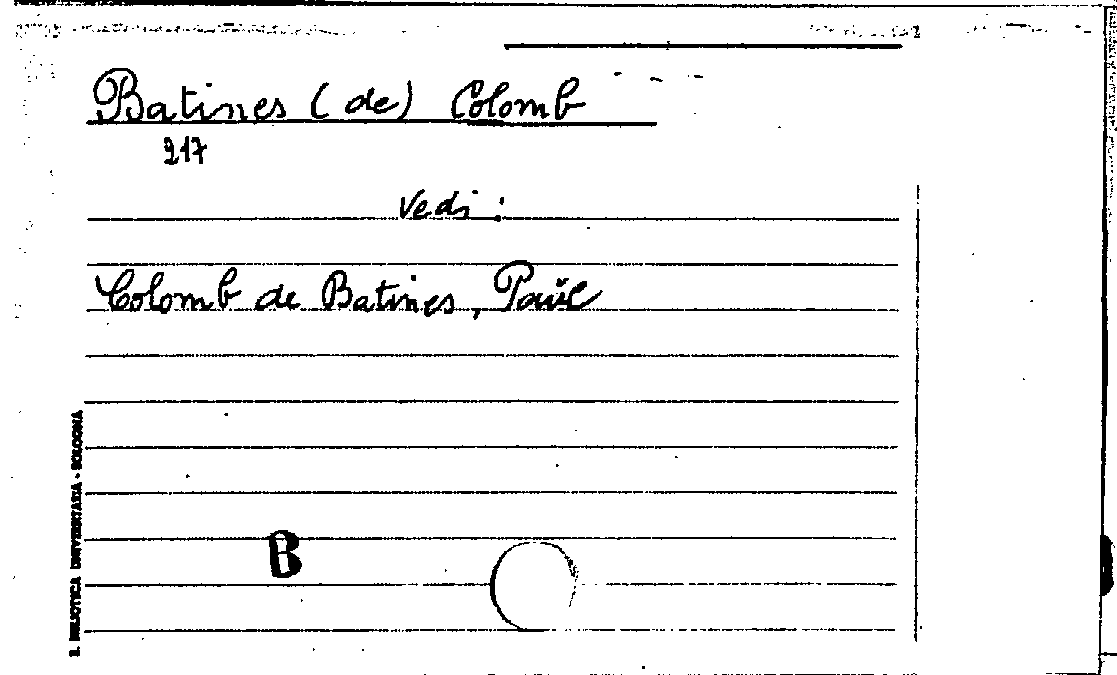 Batines (de) Colomb
217
Vedi :
Colomb de Batines, Paül
B
R. BIBLIOTECA UNIVERSITARIA - BOLOGNA